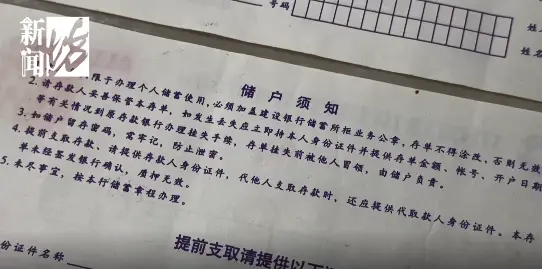 新闻坊
号码
姓
姓名
储户须知
限于办理个人储蓄使用,必须加盖建设银行储蓄所柜业务公章,存单不得涂改,否则无效
2. 请存款人妥善保管本存单,如发生丢失应立即持本人身份证件并提供存单金额、帐号、开户日期
等有关情况到原存款银行办理挂失手续,存单挂失前被他人冒领,由储户负责。
3. 如储户留存密码,需牢记,防止泄密。
4. 提前支取存款,请提供存款人身份证件,代他人支取存款时,还应提供代取款人身份证件。本存
单未经签发银行确认,质押无效。
5. 未尽事宜,按本行储蓄章程办理。
提前支取请提供以下
份证件名称